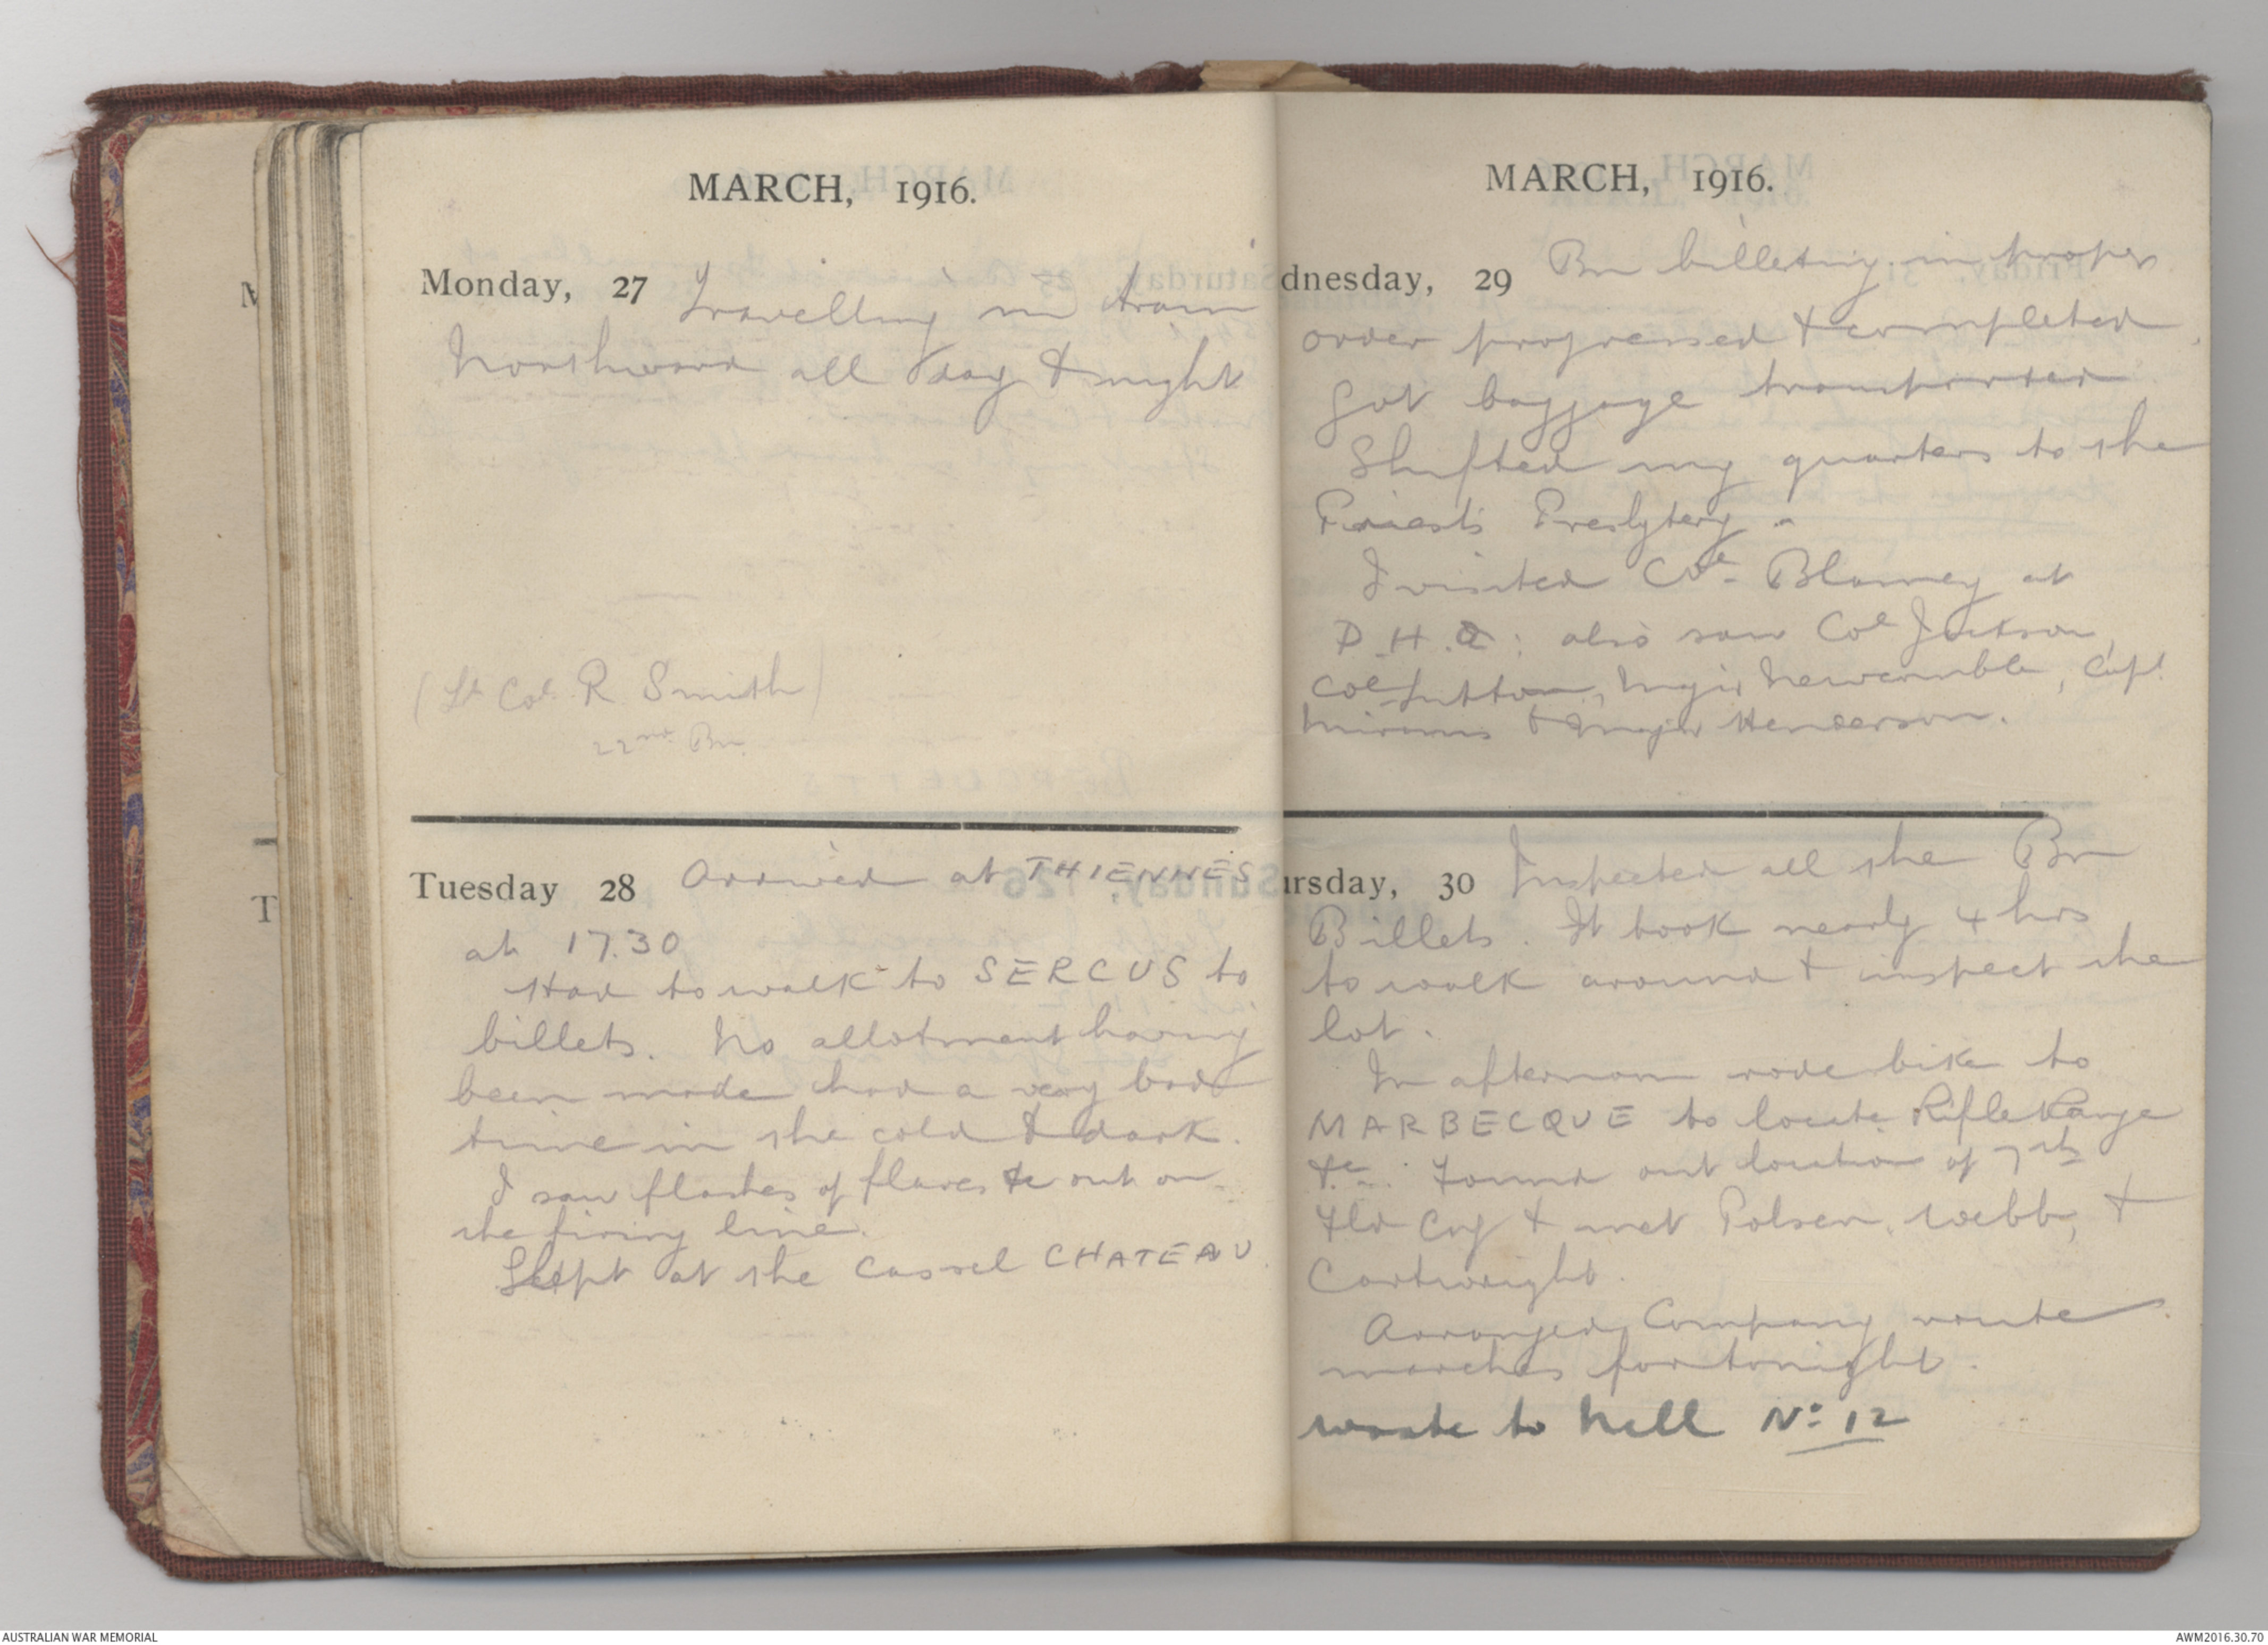 MARCH, 1916.
Monday, 27 Travelling in train
Northward all day & night
(Lt Col. R Smith)
22nd Bn.
Tuesday 28 Arrived at THIENNES
at 17.30
Had to walk to SERCUS to
billets. No allotment having
been made had a very bad
time in the cold & dark.
I saw flashes of flares &c out on
the firing line.
Slept at the Cassel CHATEAU.
MARCH, 1916.
dnesday, 29 Bn billeting in proper
order progressed & completed.
Got baggage transported
Shifted my quarters to the
Priests Presbytery.
I visited Col. Blamey at
D.H.Q: also saw Col Jackson,
Col Sutton, Major Newcombe, Capt.
& Major Henderson.
ursday, 30 Inspected all the Bn
Billets. It took nearly 4 hrs
to walk around & inspect the
lot.
In afternoon rode bike to
MARBECQUE to locate Rifle Range
&c. Found out location of 7th
Fld Coy & met Polsen, Webb, &
Cartwright.
Arranged Company route
marches for tonight.
wrote to Nell No 12
M
T
AUSTRALIAN WAR MEMORIAL
AWM2016.30.70